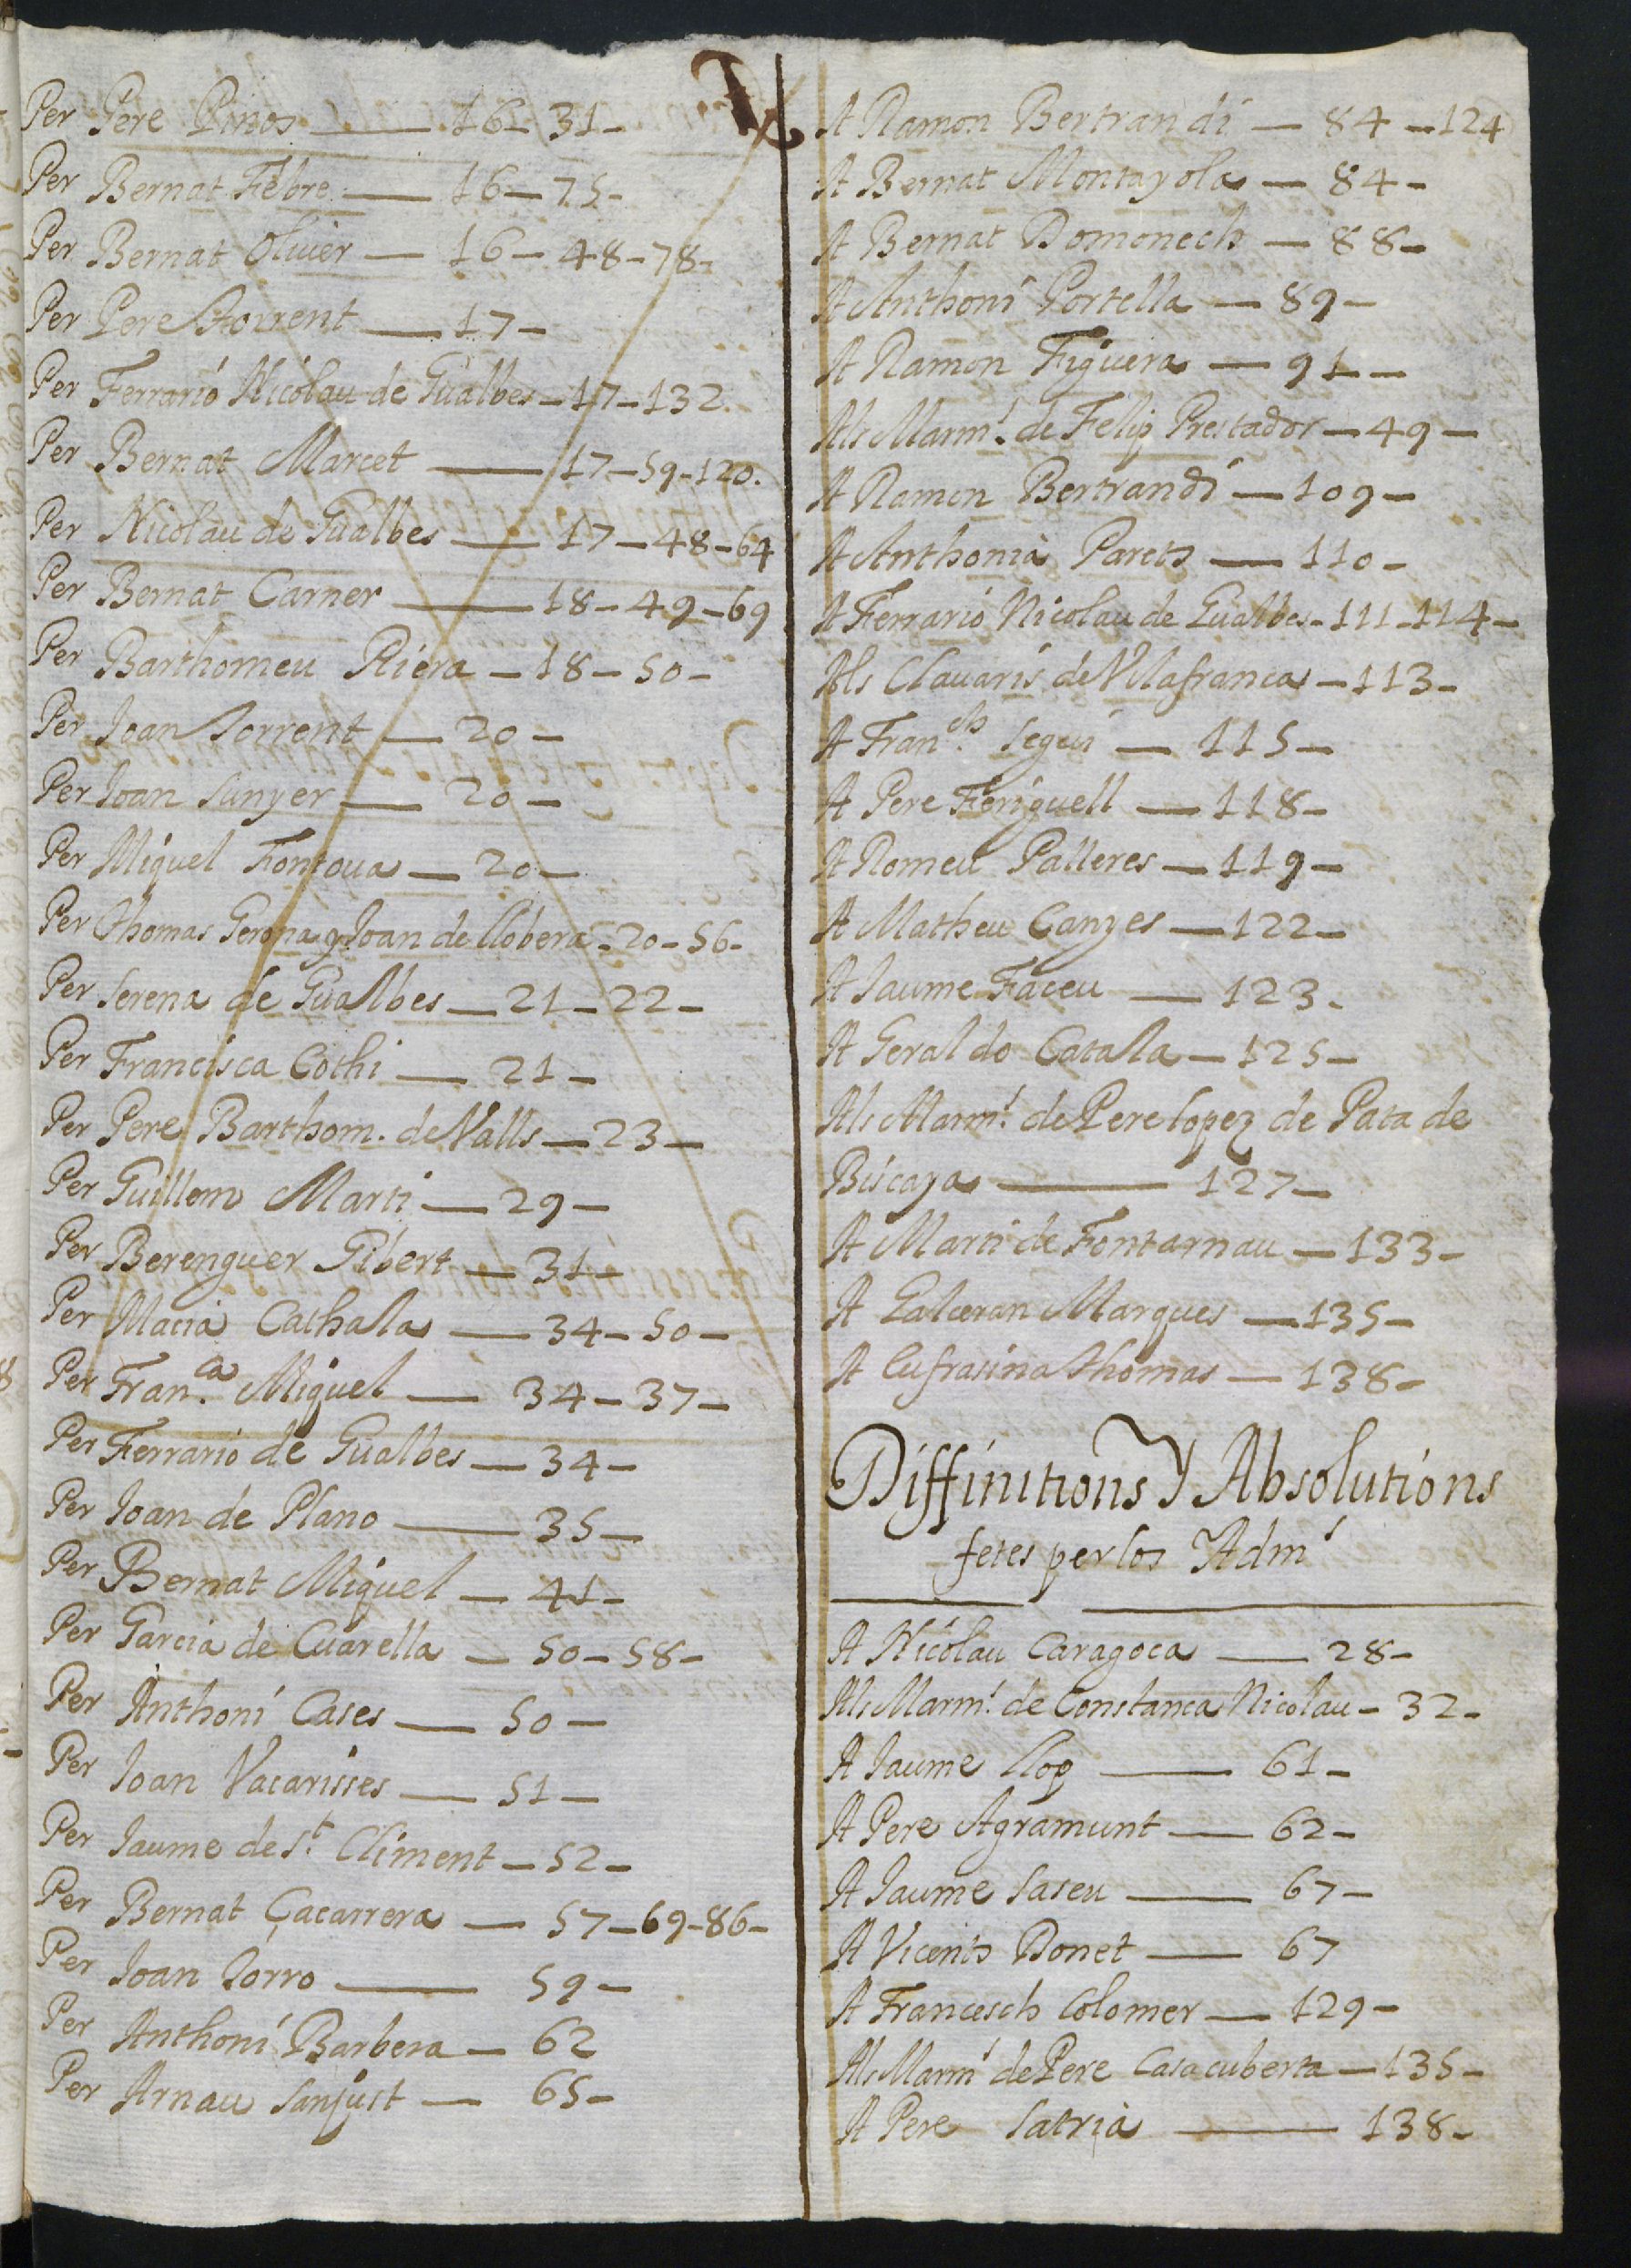 Per Pere Pinos — 16 - 31 -
Per Bernat Febre — 16 - 75 -
Per Bernat Oliuer — 16 - 48 - 78 -
Per Pere Torrent — 17 -
Per Ferrario Nicolau de Gualbes - 17 - 132.
Per Bernat Marcet — 17 - 59 - 120.
Per Nicolau de Gualbes — 17 - 48 - 64
Per Bernat Carner — 18 - 49 - 69
Per Barthomeu Riera - 18 - 50 -
Per Joan Torrent — 20 -
Per Joan Sunyer — 20 -
Per Miquel Fontoua — 20 -
Per Thomas Gerona y Joan de llobera - 20 - 56 -
Per Serena de Gualbes — 21 - 22 -
Per Francisca Cothi — 21 -
Per Pere Barthom. de Valls — 23 -
Per Guillem Marti — 29 -
Per Berenguer Gibert — 31 -
Per Macia Cathala — 34 - 50 -
Per Fran.ca Miquel — 34 - 37 -
Per Ferrario de Gualbes — 34 -
Per Joan de Plano — 35 -
Per Bernat Miquel — 41 -
Per Garcia de Cuarella — 50 - 58 -
Per Anthoni Cases — 50 -
Per Joan Vacarisses — 51 -
Per Jaume de S.t Climent — 52 -
Per Bernat Çacarrera — 57 - 69 - 86 -
Per Joan Jorro — 59 -
Per Anthoni Barbera — 62
Per Arnau Sanjust — 65 -
A Ramon Bertrandi — 84 - 124
A Bernat Montayola — 84 -
A Bernat Domonech — 88 -
A Anthoni Portella — 89 -
A Ramon Figuera — 91 -
Als Marm.s de Felip Prestador — 49 -
A Ramon Bertrandi — 109 -
A Anthonia Parets — 110 -
A Ferrario Nicolau de Gualbes - 111 - 114 -
Als Clauaris de Vilafranca — 113 -
A Fran.ch Segui — 115 -
A Pere Feriguell — 118 -
A Romeu Palleres — 119 -
A Matheu Canyes — 122 -
A Jaume Faceu — 123 -
A Geraldo Catala — 125 -
Als Marm.s de Pere lopez de Pata de
Biscaya — 127 -
A Marti de Fontarnau — 133 -
A Galceran Marques — 135 -
A Eufrasina Thomas — 138 -
Diffinitions Y Absolutions
fetes per los Adm.s
A Nicolau Caragoca — 28 -
Als Marm.s de Constanca Nicolau - 32 -
A Jaume Llop — 61 -
A Pere Agramunt — 62 -
A Jaume Saseu — 67 -
A Vicents Bonet — 67
A Francesch Colomer — 129 -
Als Marm.s de Pere Casacuberta — 135 -
A Pere Satria — 138 -